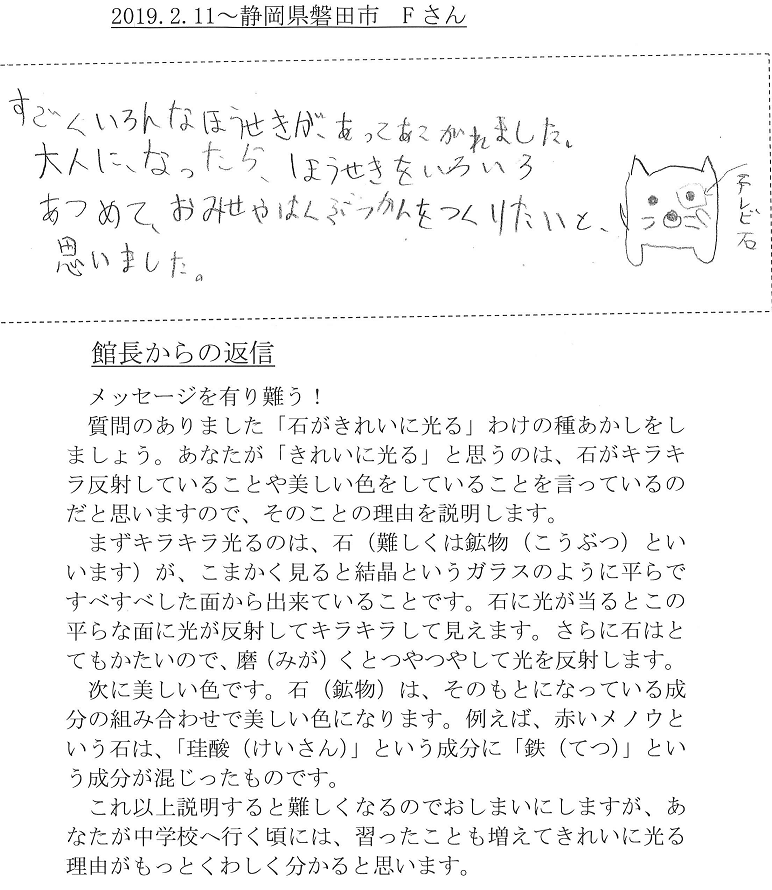 2019.2.11～静岡県磐田市　Fさん
すごくいろんなほうせきが、あってあこがれました。
大人に、なったら、ほうせきをいろいろ
あつめて、おみせやはくぶつかんをつくりたいと、
思いました。
テレビ石
館長からの返信
メッセージを有り難う！
質問のありました「石がきれいに光る」わけの種あかしをし
ましょう。あなたが「きれいに光る」と思うのは、石がキラキ
ラ反射していることや美しい色をしていることを言っているの
だと思いますので、そのことの理由を説明します。
まずキラキラ光るのは、石（難しくは鉱物（こうぶつ）とい
います）が、こまかく見ると結晶というガラスのように平らで
すべすべした面から出来ていることです。石に光が当るとこの
平らな面に光が反射してキラキラして見えます。さらに石はと
てもかたいので、磨（みが）くとつやつやして光を反射します。
次に美しい色です。石（鉱物）は、そのもとになっている成
分の組み合わせで美しい色になります。例えば、赤いメノウと
いう石は、「珪酸（けいさん）」という成分に「鉄（てつ）」とい
う成分が混じったものです。
これ以上説明すると難しくなるのでおしまいにしますが、あ
なたが中学校へ行く頃には、習ったことも増えてきれいに光る
理由がもっとくわしく分かると思います。